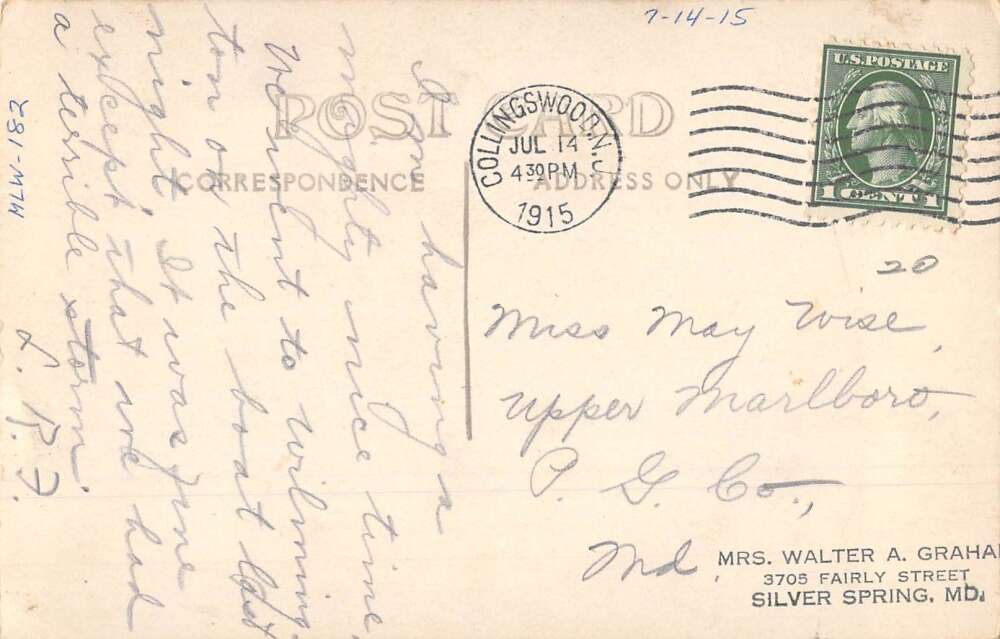 7-14-15
U.S.POSTAGE
1 CENT 1
POST CARD
COLLINGSWOOD, N.J.
JUL 14
4 30 PM
1915
CORRESPONDENCE
ADDRESS ONLY
HLW-182
Am having a
mighty nice time,
We went to Wilming-
ton on the boat last
night. It was fine
except that we had
a terrible storm.
L. R. F.
20
Miss May Wise,
Upper Marlboro,
P. G. Co.,
Md.
MRS. WALTER A. GRAHA
3705 FAIRLY STREET
SILVER SPRING, MD.